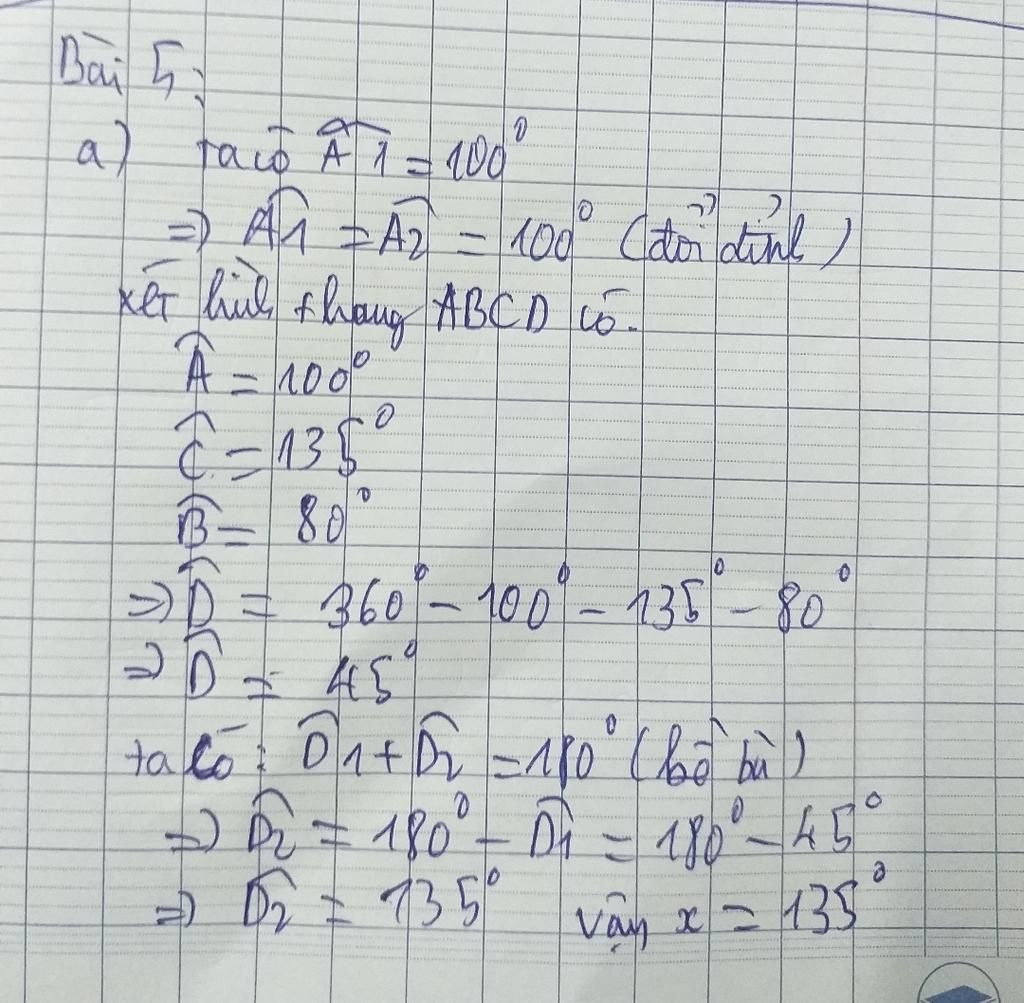 Bài 5:
a) ta có Â1 = 100°
=> Â1 = Â2 = 100° (đối đỉnh)
xét hình thang ABCD có.
Â = 100°
Ĉ = 135°
B̂ = 80°
=> D̂ = 360° - 100° - 135° - 80°
=> D̂ = 45°
ta có: D̂1 + D̂2 = 180° (bồ bù)
=> D̂2 = 180° - D̂1 = 180° - 45°
=> D̂2 = 135° vậy x = 135°